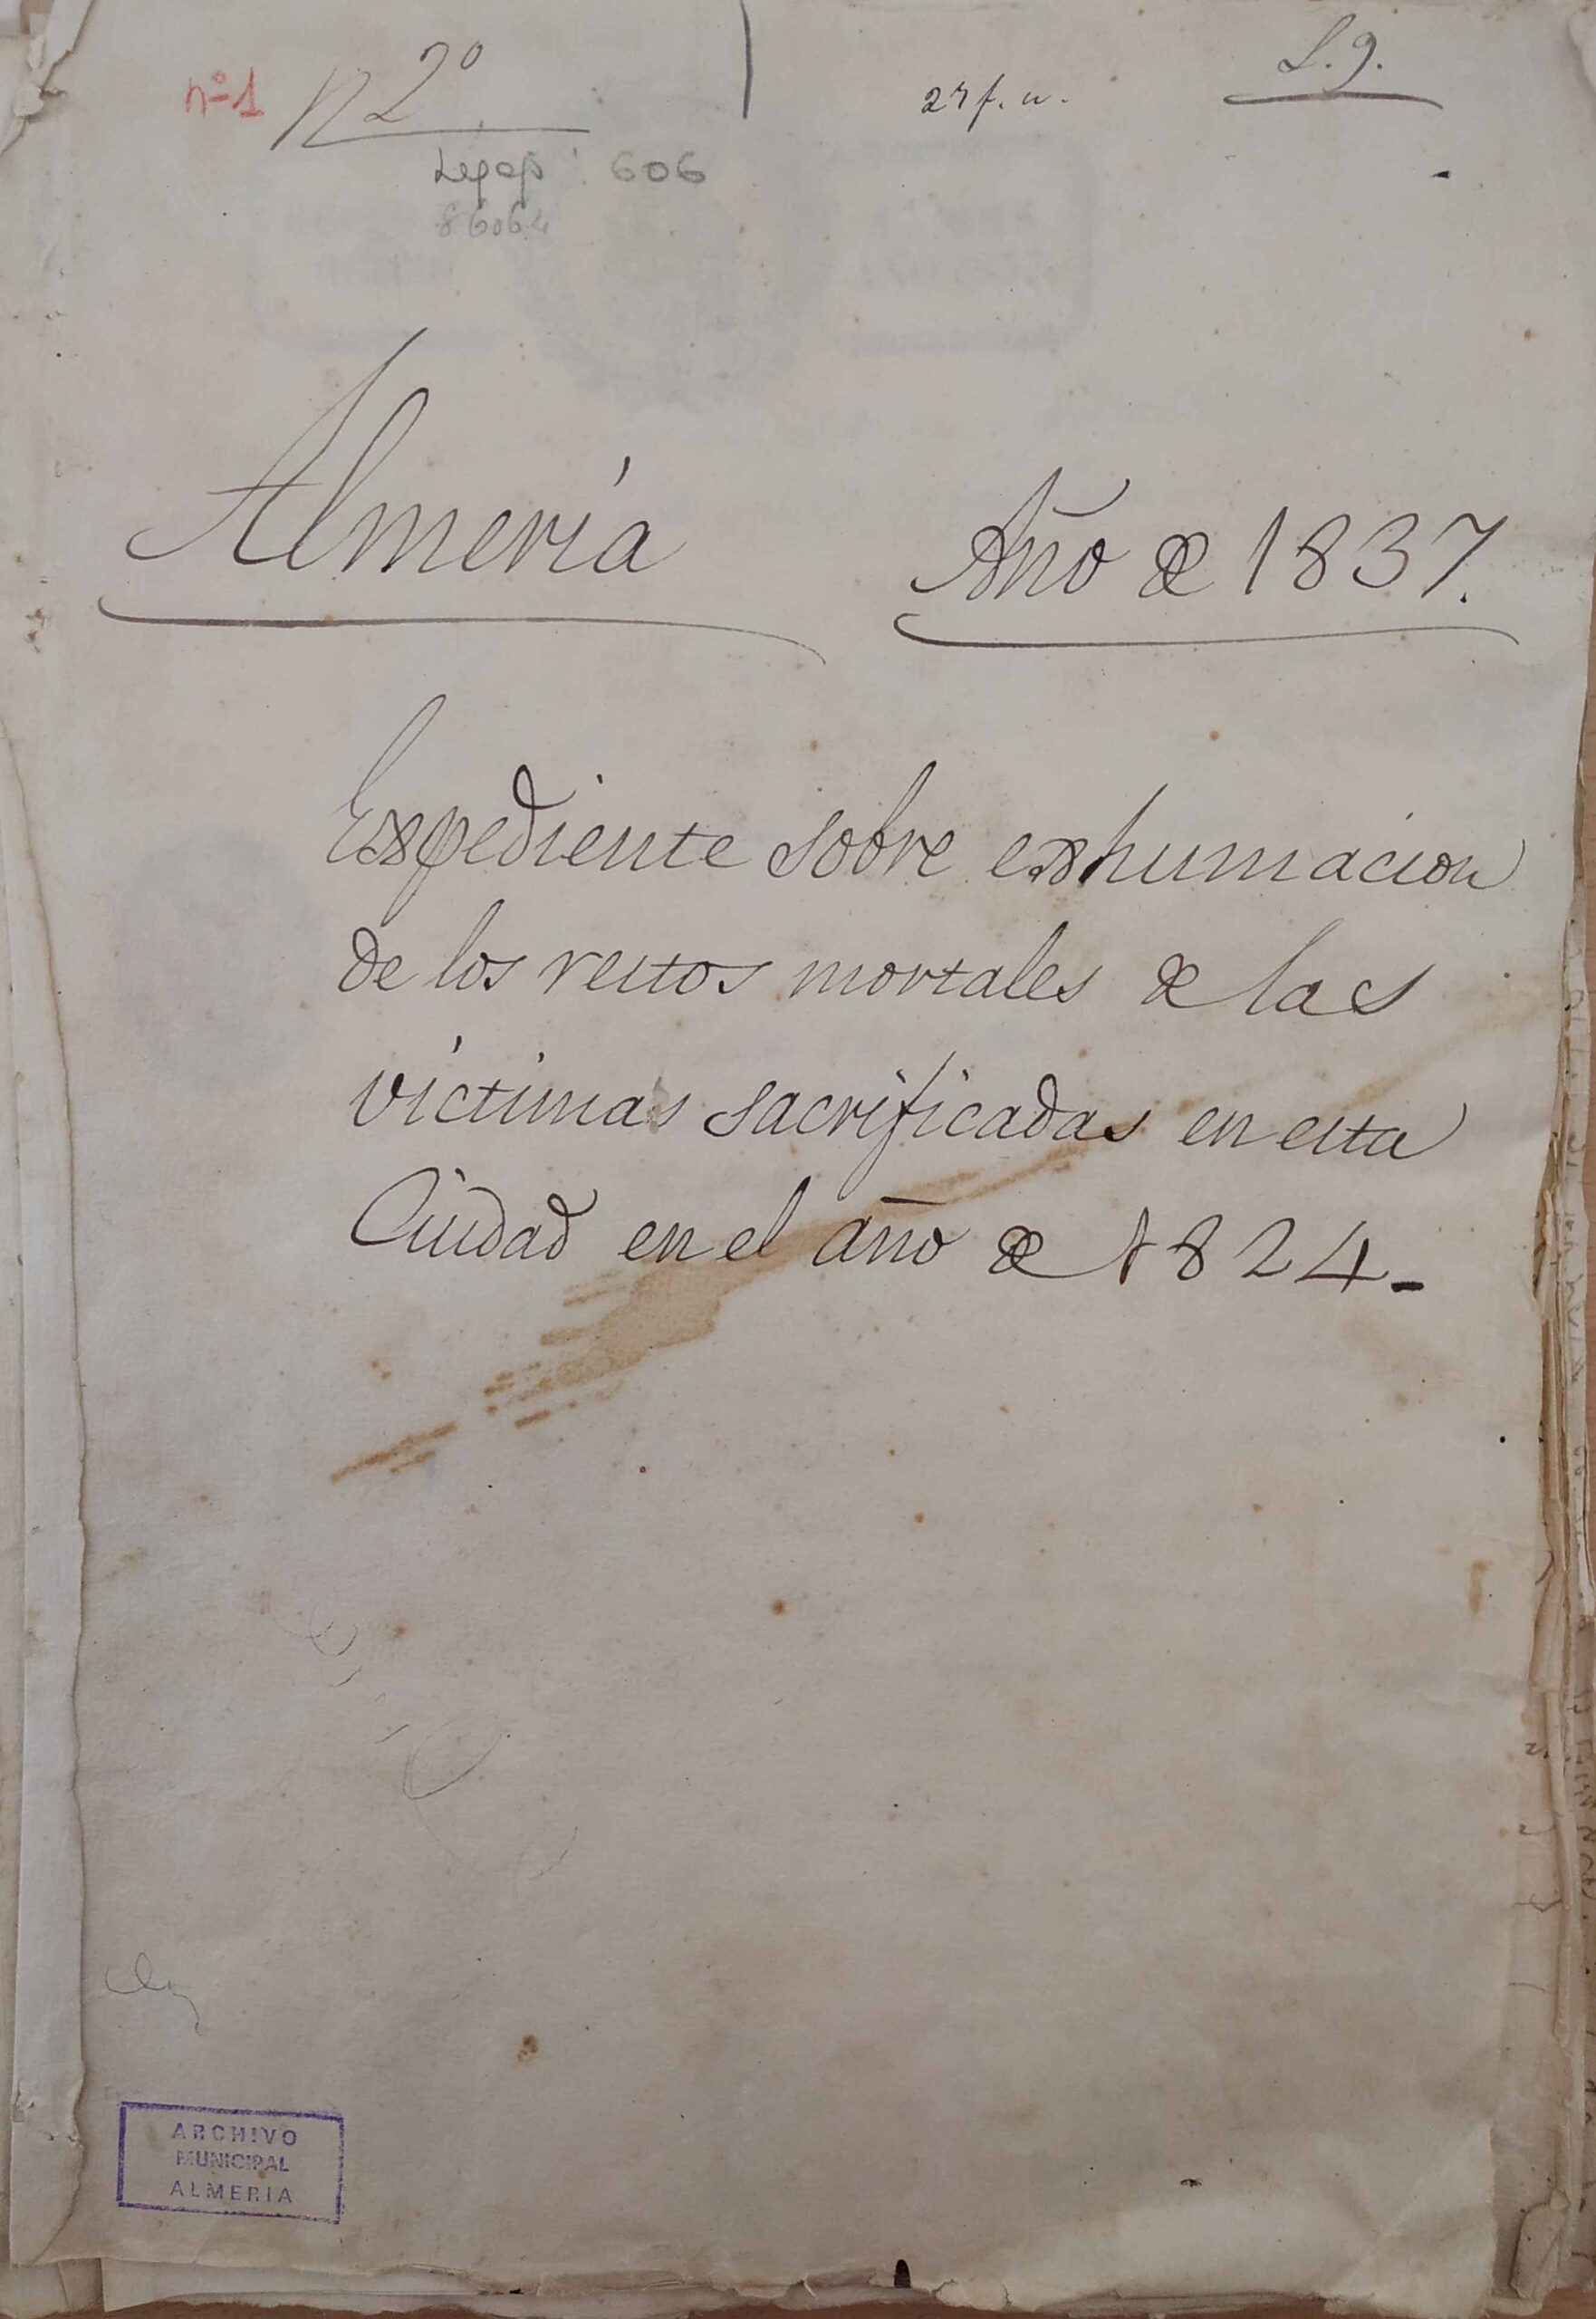 nº 1
N 2º
27 f. u.
L. 9.
Legajo: 606
86064
Almería
Año de 1837.
Expediente sobre exhumacion
de los restos mortales de las
víctimas sacrificadas en esta
Ciudad en el año de 1824.
ARCHIVO
MUNICIPAL
ALMERIA